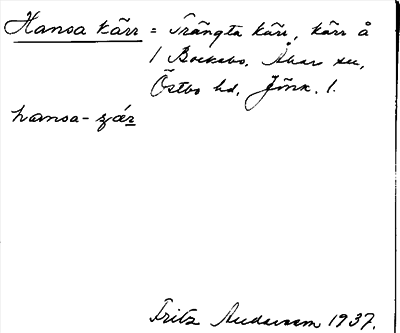 Hansa kärr = Trängta kärr, kärr å
1 Bocksbo, Åkar sn,
Östbo hd, Jönk. l.
hansa-
Fritz Andersson 1937.